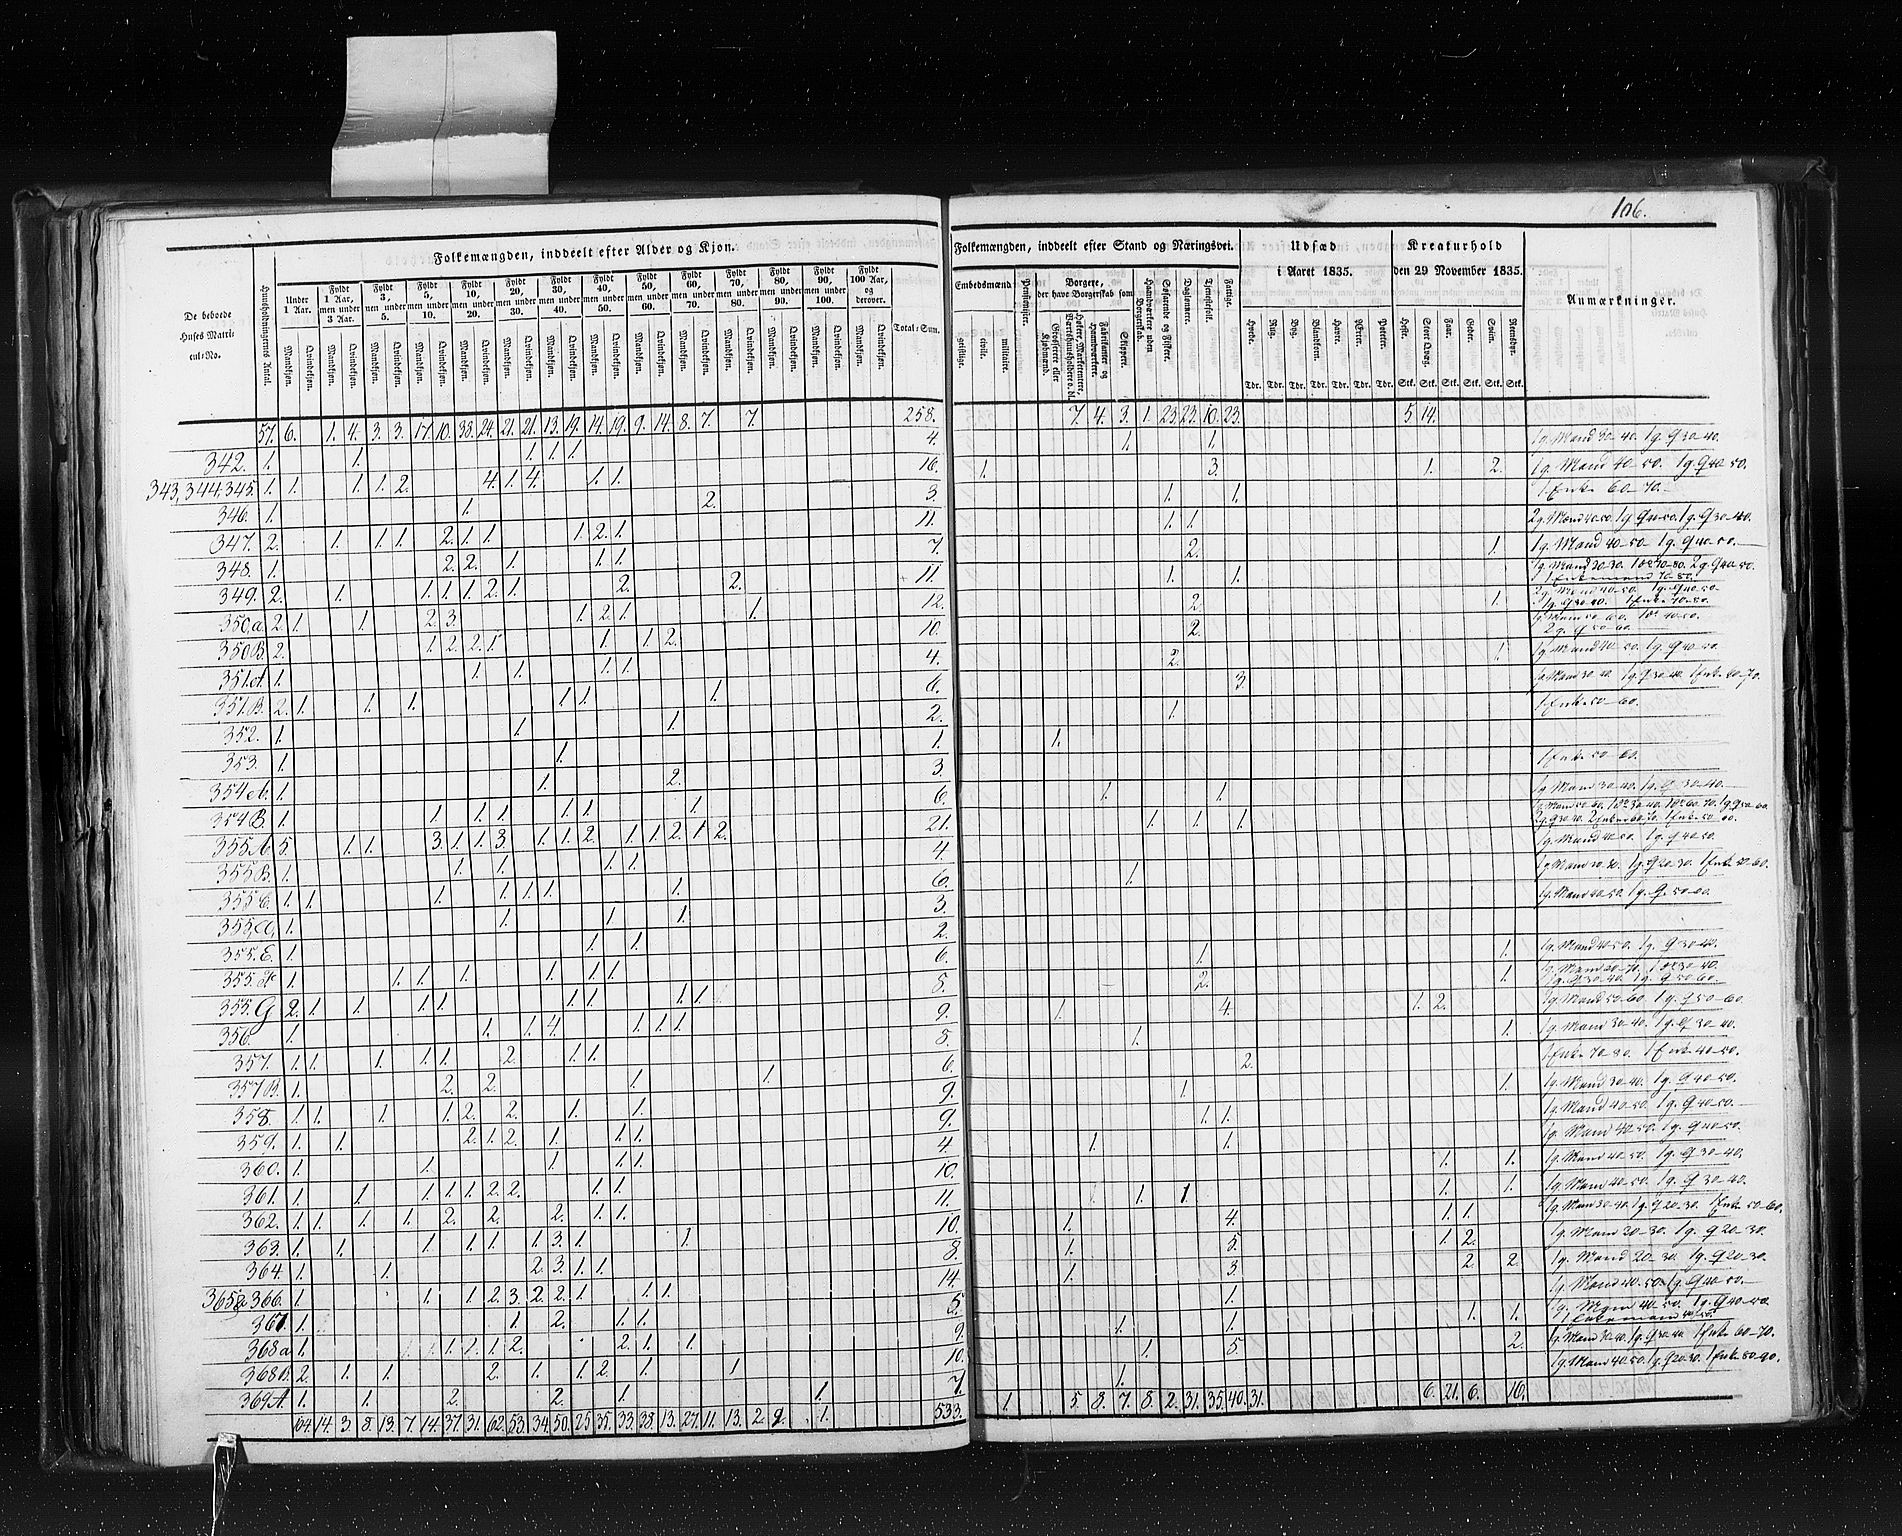 106.
Folkemængden, inddeelt efter Alder og Kjøn.
De beboede Huses Matricul-No.
Huusholdningernes Antal.
Under 1 Aar.
Fyldt 1 Aar, men under 3 Aar.
Fyldt 3, men under 5.
Fyldt 5, men under 10.
Fyldt 10, men under 20.
Fyldt 20, men under 30.
Fyldt 30, men under 40.
Fyldt 40, men under 50.
Fyldt 50, men under 60.
Fyldt 60, men under 70.
Fyldt 70, men under 80.
Fyldt 80, men under 90.
Fyldt 90, men under 100.
Fyldt 100 Aar, og derover.
Mandkjøn. Qvindekjøn.
Total-Sum.
57. 6. 1. 4. 3. 3. 17. 10. 38. 24. 21. 21. 13. 19. 14. 19. 9. 14. 8. 7. 7. 258.
342. 1. 1. 1. 1. 1. 4.
343, 344, 345. 1. 1. 1. 1. 2. 4. 1. 4. 1. 1. 16.
346. 1. 1. 2. 3.
347. 2. 1. 1. 1. 2. 1. 1. 1. 2. 1. 11.
348. 1. 2. 2. 1. 1. 1. 7.
349. 2. 1. 1. 1. 1. 2. 1. 2. 2. 11.
350,a. 2. 1. 1. 2. 3. 1. 2. 1. 1. 12.
350B. 2. 1. 2. 2. 1. 1. 1. 2. 10.
351A 1. 1. 1. 1. 1. 4.
351.B. 2. 1. 1. 1. 1. 1. 1. 6.
352. 1. 1. 1. 2.
353. 1. 1. 1.
354 1. 1. 2. 3.
354 B. 1. 1. 1. 1. 1. 1. 1. 6.
355 5. 1. 1. 3. 1. 1. 3. 1. 1. 2. 1. 1. 2. 1. 2. 21.
355 B. 1. 1. 1. 1. 1. 4.
355 1. 1. 1. 1. 1. 1. 1. 6.
355 1. 1. 1. 1. 3.
355.E. 1. 1. 1. 2.
355. 1. 1. 1. 1. 1. 1. 1. 6.
355.G 2. 1. 1. 1. 1. 1. 1. 1. 1. 8.
356. 1. 1. 1. 4. 1. 1. 1. 9.
357. 1. 1. 1. 1. 1. 2. 1. 1. 8.
357B. 1. 2. 2. 1. 1. 6.
358. 1. 1. 1. 1. 2. 2. 1. 1. 9.
359. 1. 1. 2. 1. 2. 1. 1. 1. 9.
360. 1. 1. 1. 1. 1. 4.
361. 1. 1. 1. 1. 1. 2. 2. 1. 1. 10.
362. 1. 1. 1. 1. 2. 2. 2. 1. 1. 11.
363. 1. 1. 1. 1. 1. 1. 3. 1. 1. 10.
364. 1. 1. 2. 3. 1. 1. 8.
365 & 366. 1. 1. 1. 2. 3. 2. 2. 1. 1. 1. 14.
367. 1. 1. 2. 1. 1. 5.
368a 1. 1. 1. 1. 2. 2. 1. 1. 9.
368B. 2. 1. 1. 2. 1. 1. 2. 1. 1. 10.
369A 1. 1. 2. 2. 1. 1. 7.
104. 14. 3. 8. 13. 7. 14. 37. 31. 62. 53. 34. 50. 25. 35. 33. 38. 13. 27. 11. 13. 2. 2. 1. 533.
Folkemængden, inddeelt efter Stand og Næringsvei.
Embedsmænd
geistlige. civile. militaire.
Pensionister.
Borgere, der have Borgerskab som
Grosserere eller Kjøbmænd.
Høkere, Marketentere, Værtshuusholdere o. dl.
Fabrikanter og Haandværkere.
Skippere.
Haandværkere uden Borgerskab.
Søfarende og Fiskere.
Daglønnere.
Tjenestefolk.
Fattige.
Udsæd i Aaret 1835.
Hvede. Rug. Byg. Blandkorn. Havre. Ærter. Poteter.
Tdr. Tdr. Tdr. Tdr. Tdr. Tdr. Tdr.
Kreaturhold den 29 November 1835.
Heste. Stort Qvæg. Faar. Geder. Sviin. Reensdyr.
Stk. Stk. Stk. Stk. Stk. Stk.
Anmærkninger.
7. 4. 3. 1. 23. 23. 10. 23. 5 14.
1. 1. 1g. Mand 30-40. 1g. Q 30-40.
1. 3. 1. 2. 1g. Mand 40-50. 1g. Q 40-50.
1. 1. 1 Enke 60-70.
1. 1. 2g. Mænd 40-50. 1g Q 40-50. 1g. Q 30-40.
2. 1. 1g. Mand 40-50 1g. Q 40-50.
1. 1. 1g. Mand 20-30. 1 do 70-80. 2g. Q 40-50.
1 Enkemand 70-80.
2. 1. 2g. Mænd 40-50. 1g. Q 40-50
1g. Q 30-40. 1 Enke 70-80.
2. 1g. Mand 50-60. 1 do 40-50.
2g. Q 50-60.
2. 1. 1g. Mand 40-50. 1g. Q 40-50.
3. 1g. Mand 30-40. 1g. Q 30-40. 1 Enke 60-70.
1. 1 Enke 50-60.
1.
1 Enke 50-60.
1. 1. 1g. Mand 30-40. 1g. Q 30-40.
1. 1. 1.
1g. Mand 40-50. 1g. Q 40-50.
1. 1g. Mand 20-30. 1g. Q 20-30. 1 Enke 50-60.
1g. Mand 40-50. 1g. Q. 50-60.
1. 1. 1g. Mand 40-50. 1g. Q 30-40.
2. 1. 1g. Mand 60-70. 1 do 30-40.
1g. Q 30-40. 1g. Q 50-60.
1. 4. 1. 2. 1g. Mand 50-60. 1g. Q 50-60.
1. 1. 1g. Mand 30-40. 1g. Q 30-40.
2. 1 Enke 70-80. 1 Enke 40-50.
1. 1. 1g. Mand 30-40. 1g. Q 40-50.
1. 1. 1g. Mand 40-50. 1g. Q 40-50.
1. 1. 1g. Mand 40-50. 1g. Q 40-50.
1. 1. 1g. Mand 40-50. 1g. Q 30-40.
1. 1. 1. 1. 1g. Mand 40-50. 1g. Q 30-40.
1. 4. 1. 1. 1g. Mand 30-40. 1g. Q 20-30. 1 Enke 50-60.
1. 5. 1. 2. 1g. Mand 20-30. 1g. Q 20-30.
1. 3. 2. 2. 1g. Mand 20-30. 1g. Q 20-30.
1. 1g. Mand 40-50. 1g. Q 40-50.
1. 1. 1. 1. 1g. Mand 40-50. 1g. Q 40-50
1 Enkemand 40-50.
1. 5. 2. 1g. Mand 30-40. 1g. Q 30-40 1 Enke 60-70.
1. 1g. Mand 40-50. 1g. Q 20-30. 1 Enke 80-90.
1. 5. 8. 7. 8. 2. 31. 35. 40. 31. 6. 21. 6. 16.